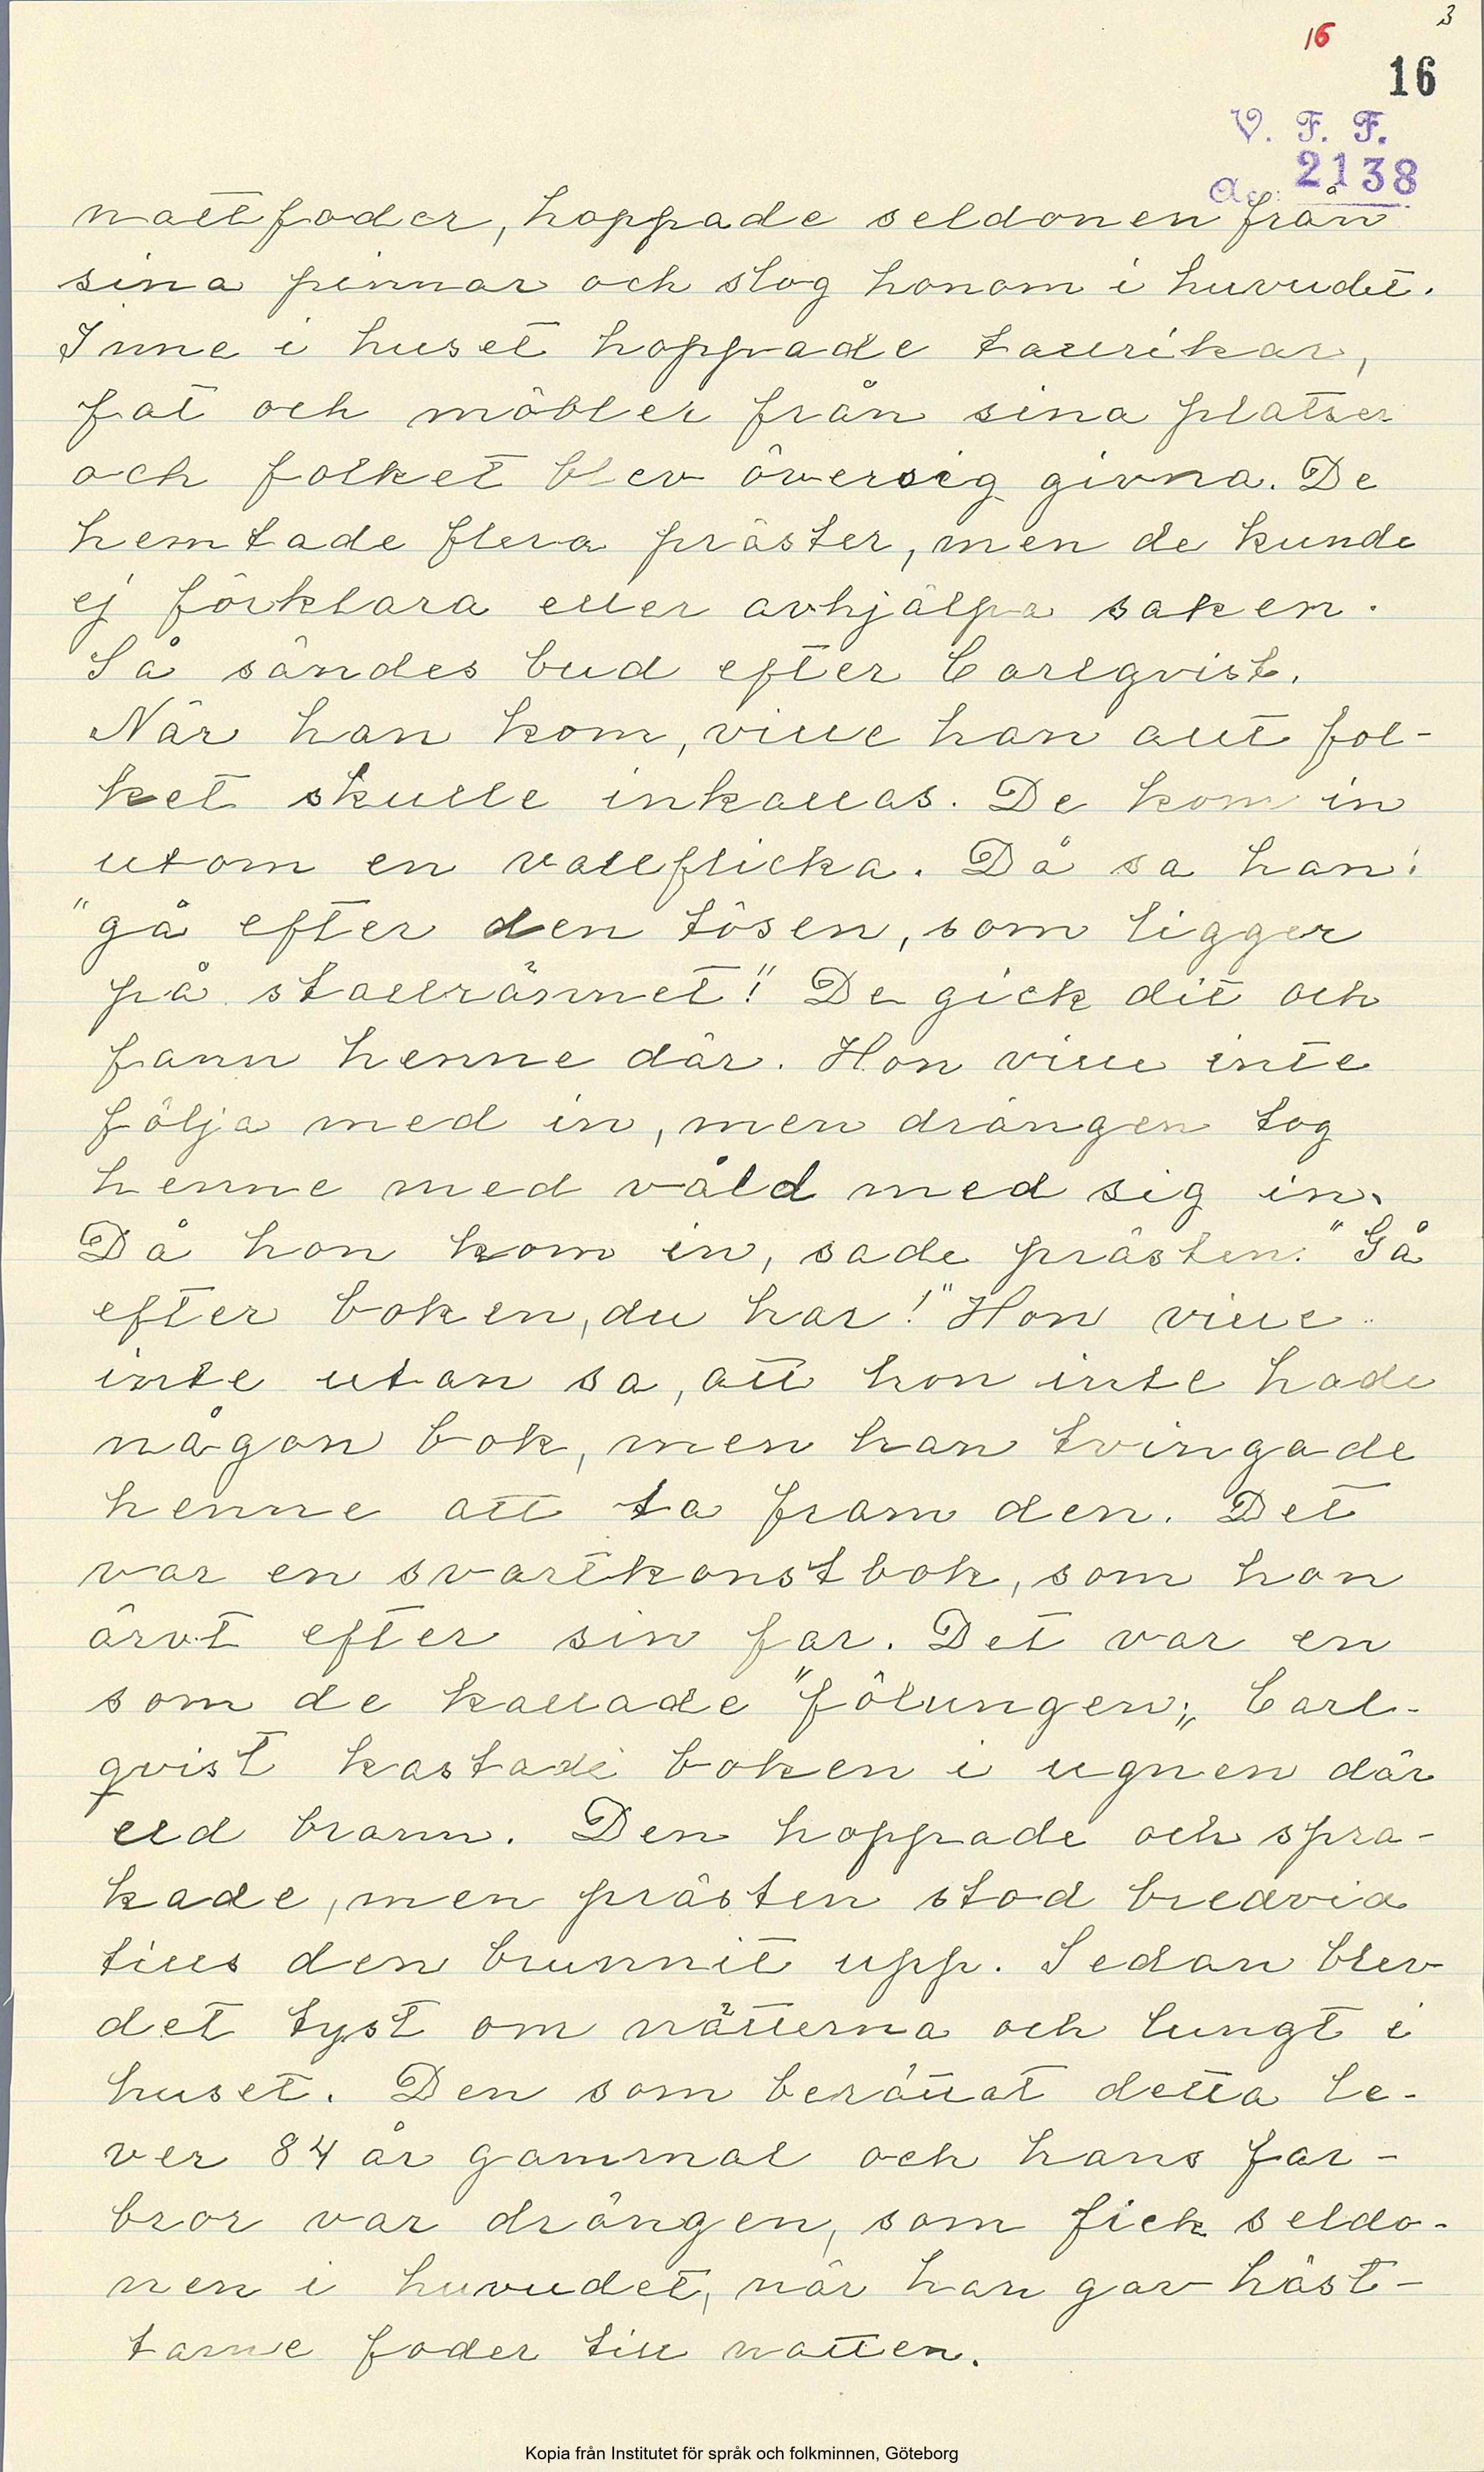 3
16
16
V. F. F.
2138
nattfoder, hoppade seldonen från
sina pinnar och slog honom i huvudet.
Inne i huset hoppade tallrikar,
fat och möbler från sina platser
och folket blev översig givna. De
hemtade flera präster, men de kunde
ej förklara eller avhjälpa saken.
Så sändes bud efter Carlqvist.
När han kom, ville han allt fol-
ket skulle inkallas. De kom in
utom en vallflicka. Då sa han:
"gå efter den tösen, som ligger
på stallrännet!" De gick dit och
fann henne där. Hon ville inte
följa med in, men drängen tog
henne med våld med sig in.
Då hon kom in, sade prästen: "Gå
efter boken, du har!" Hon ville
inte utan sa, att hon inte hade
någon bok, men han tvingade
henne att ta fram den. Det
var en svartkonstbok, som hon
ärvt efter sin far. Det var en
som de kallade "fölungen„ Carl-
qvist kastade boken i ugnen där
eld brann. Den hoppade och spra-
kade, men prästen stod bredvid
tills den brunnit upp. Sedan blev
det tyst om nätterna och lungt i
huset. Den som berättat detta le-
ver 84 år gammal och hans far-
bror var drängen, som fick seldo-
nen i huvudet, när han gav häst-
tarne foder till natten.
Kopia från Institutet för språk och folkminnen, Göteborg